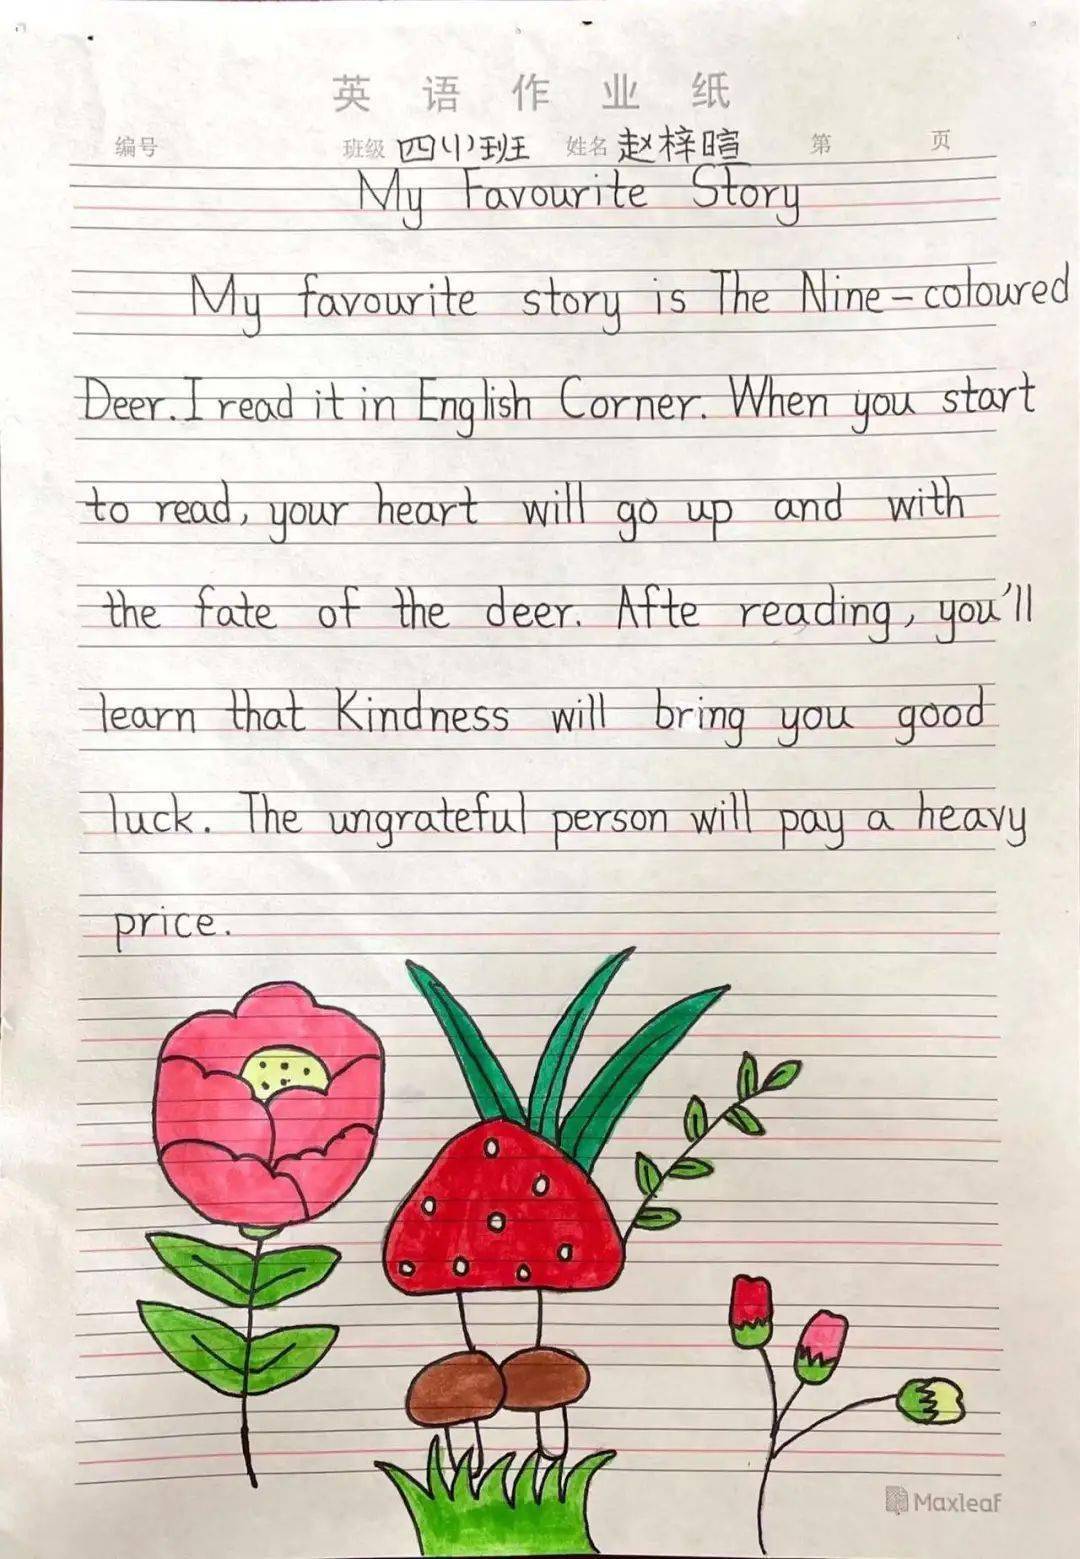 英语作业纸
编号 班级 四(1)班 姓名 赵梓暄 第 页
My Favourite Story
My favourite story is The Nine-coloured
Deer. I read it in English Corner. When you start
to read, your heart will go up and with
the fate of the deer. Afte reading, you'll
learn that Kindness will bring you good
luck. The ungrateful person will pay a heavy
price.
Maxleaf